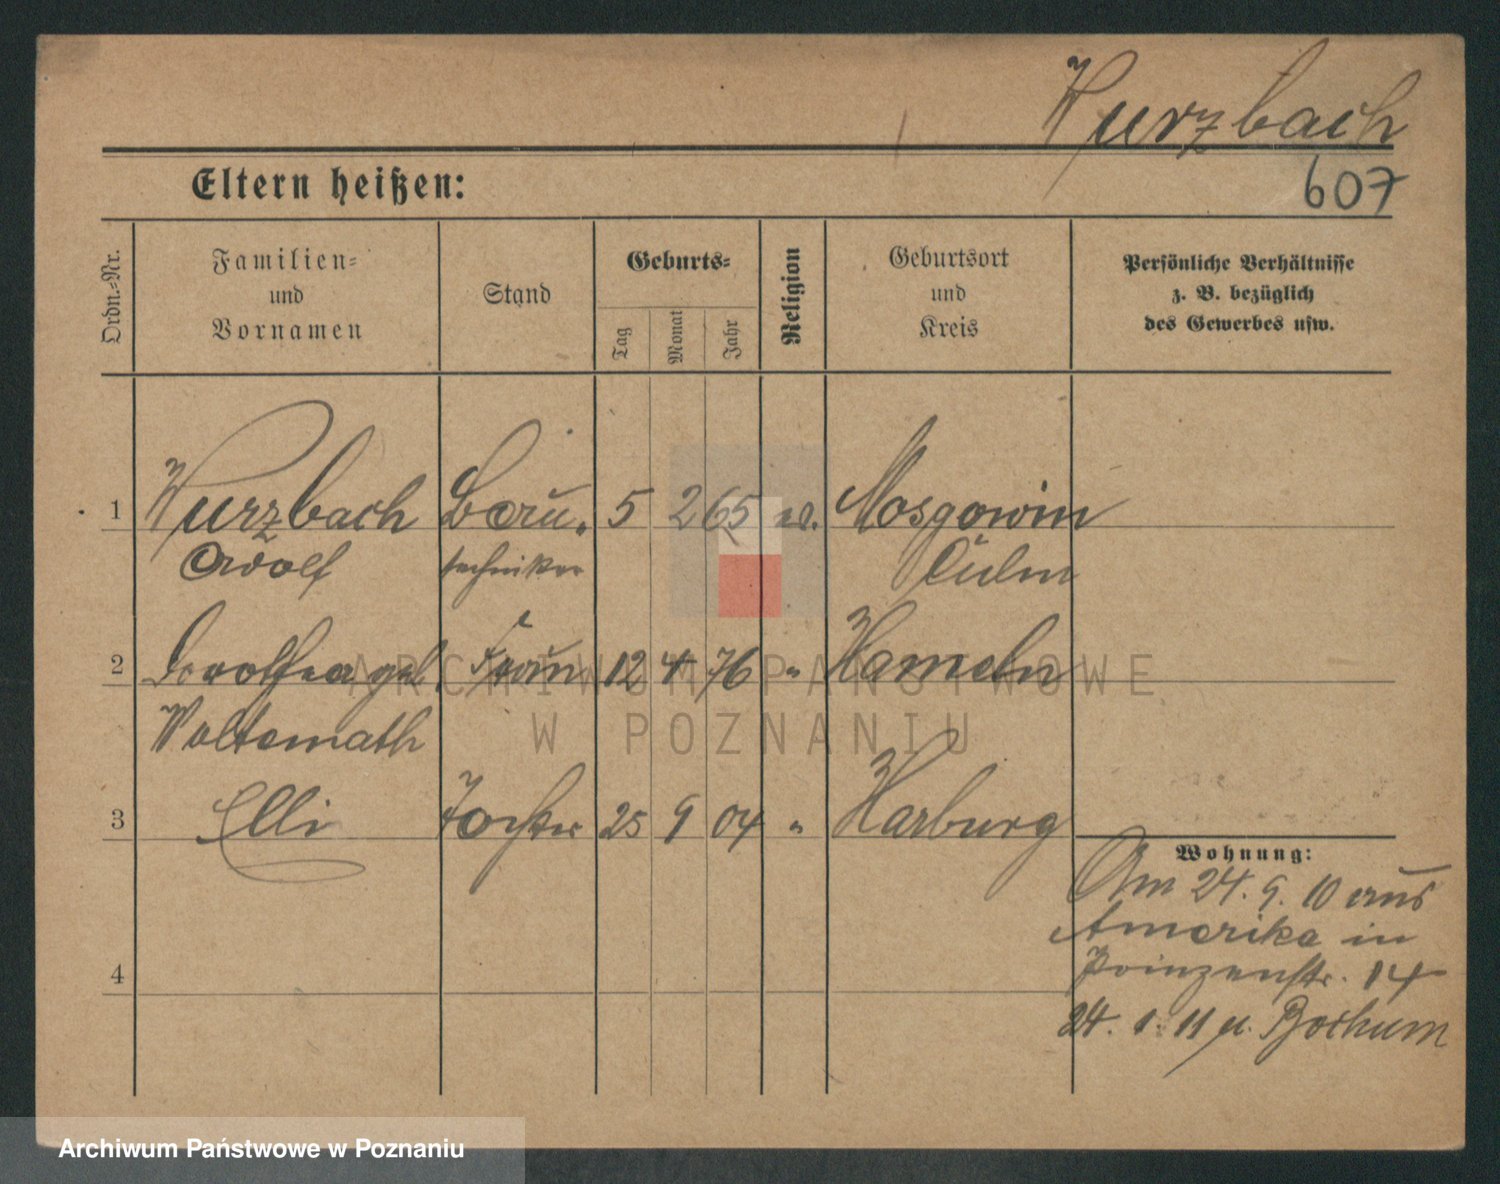 Wurzbach
607
Eltern heißen:
Ordn.-Nr.
Familien-
und
Vornamen
Stand
Geburts-
Tag
Monat
Jahr
Religion
Geburtsort
und
Kreis
Persönliche Verhältnisse
z. B. bezüglich
des Gewerbes usw.
1 Wurzbach Bau- 5 2 65 Mosgowin
Adolf techniker Culm
2 Dorothea geb. Frau 12 4 76 " Hameln
Woltemath
3 Elli Tochter 25 9 04 " Harburg
Wohnung:
Am 24. 9. 10 aus
Amerika in
Prinzenstr. 14
24. 1. 11 n. Bochum
4
ARCHIWUM PAŃSTWOWE
W POZNANIU
Archiwum Państwowe w Poznaniu